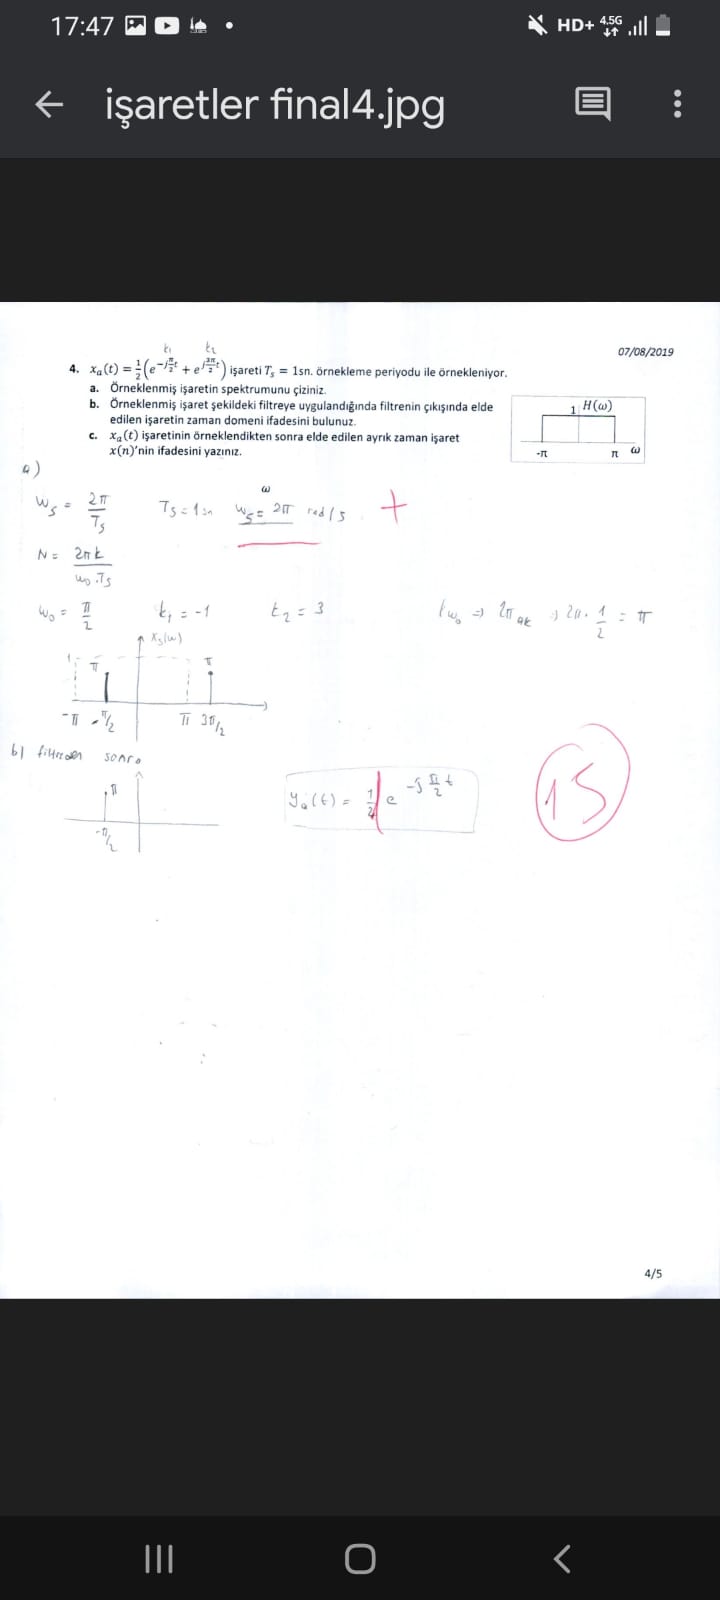 17:47
HD+ 4.5G
işaretler final4.jpg
07/08/2019
k₁ k₂
4. xₐ(t) = ½(e^(-jπ/2 t) + e^(j3π/2 t)) işareti Tₛ = 1sn. örnekleme periyodu ile örnekleniyor.
a. Örneklenmiş işaretin spektrumunu çiziniz.
b. Örneklenmiş işaret şekildeki filtreye uygulandığında filtrenin çıkışında elde
edilen işaretin zaman domeni ifadesini bulunuz.
c. xₐ(t) işaretinin örneklendikten sonra elde edilen ayrık zaman işaret
x(n)'nin ifadesini yazınız.
1 H(ω)
-π π ω
a)
ws = 2π/Ts Ts = 1 sn ws = 2π rad/s +
N = 2πk/w₀.Ts
w₀ = π/2 k₁ = -1 k₂ = 3 kw₀ => 2π ak => 2π. 1/2 = π
Xs(w)
1 π π
-π -π/2 π 3π/2
b) filtreden sonra
π
yₐ(t) = 1/2 e^(-j π/2 t)
-π/2
15
4/5